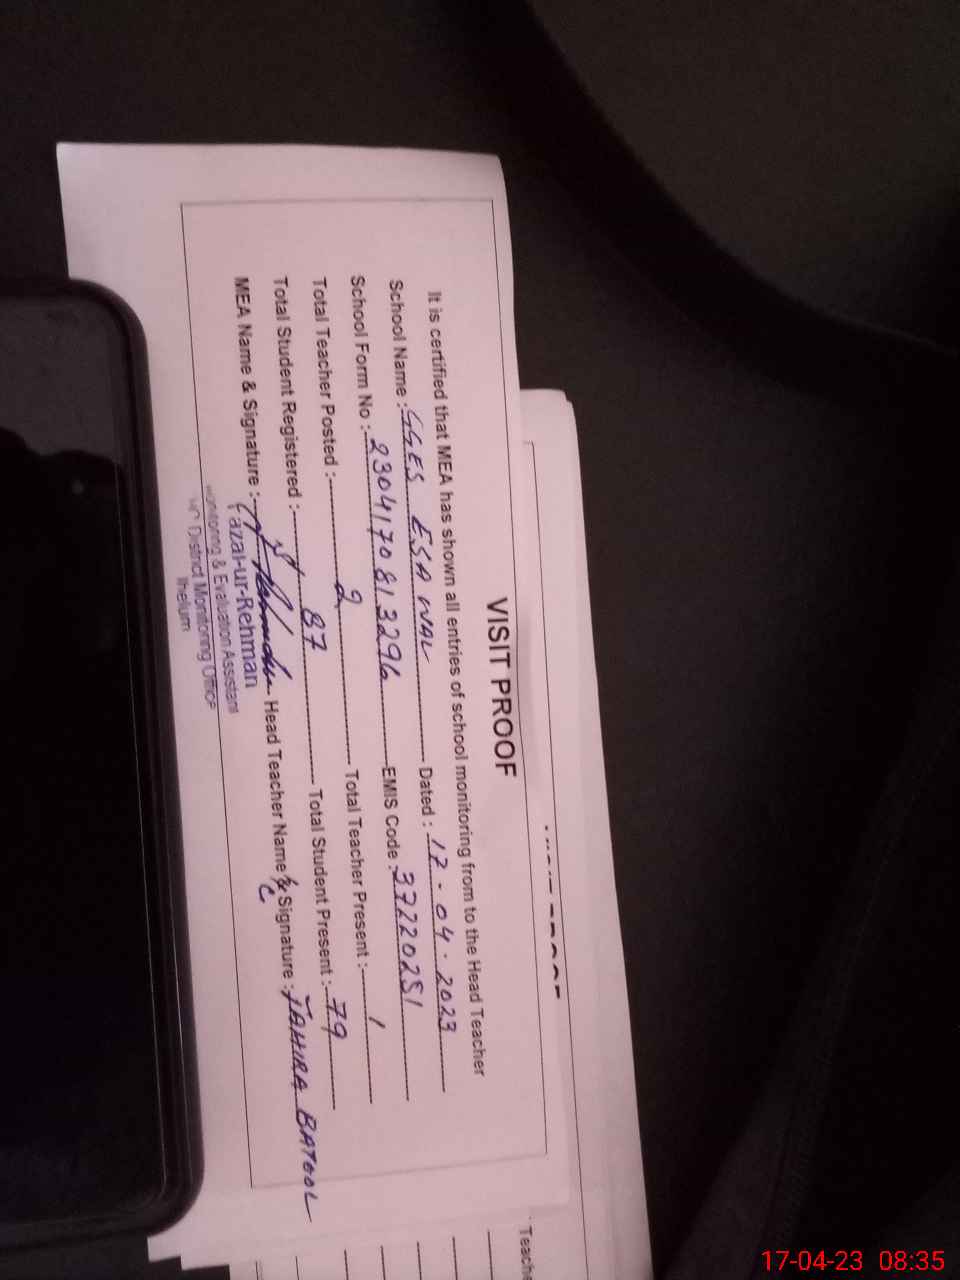 VISIT PROOF
It is certified that MEA has shown all entries of school monitoring from to the Head Teacher
School Name : GGES ESA WAL Dated : 17-04-2023
School Form No : 2304170813296 EMIS Code : 37220251
Total Teacher Posted : 2 Total Teacher Present : 1
Total Student Registered : 87 Total Student Present : 79
MEA Name & Signature : Head Teacher Name & Signature : TAHIRA BATOOL
Fazal-ur-Rehman
Monitoring & Evaluation Assistant
District Monitoring Office
Jhelum
Teache
17-04-23 08:35